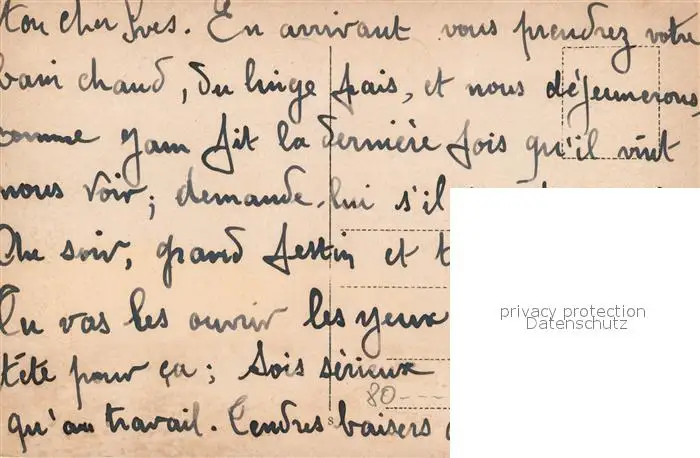 Mon cher Yves. En arrivant vous prendrez votre
bain chaud, du linge frais, et nous déjeunerons,
comme Yam fit la dernière fois qu'il vint
nous voir; demande-lui s'il
Au soir, grand festin et
Tu vas les ouvrir les yeux
tété pour ça; Sois sérieux
qu'au travail. Tendres baisers
80
privacy protection
Datenschutz